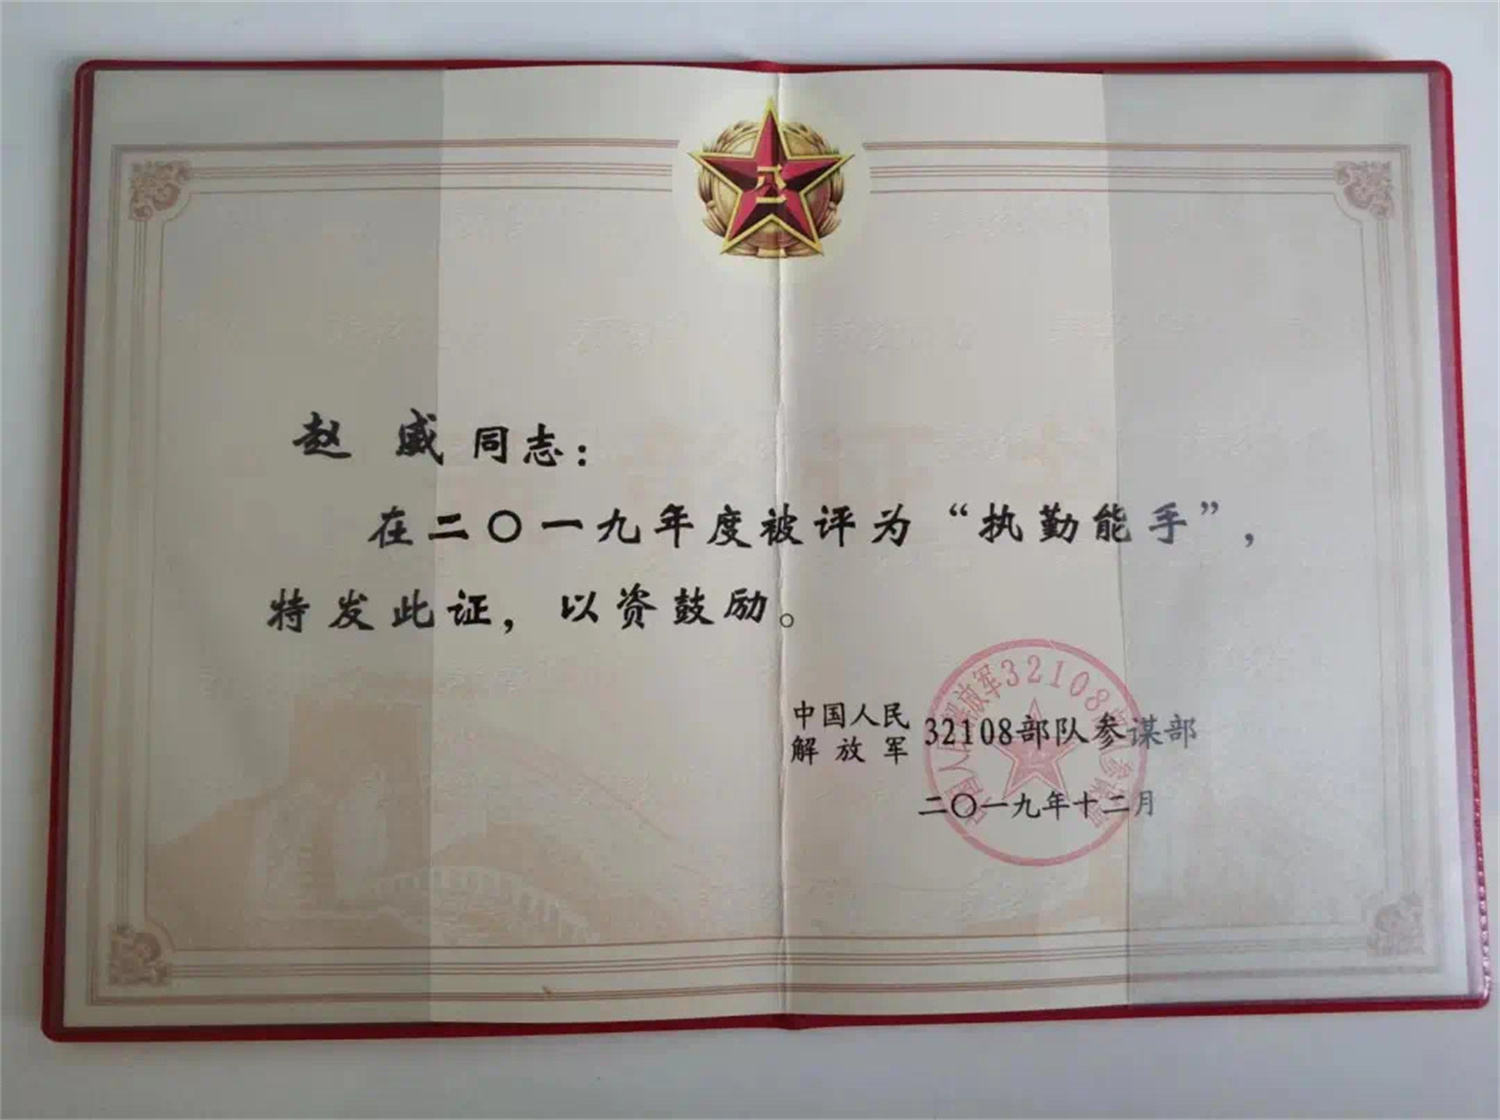 八一
赵 威 同志：
在二〇一九年度被评为“执勤能手”，
特发此证，以资鼓励。
中国人民
解放军 32108部队参谋部
二〇一九年十二月
中国人民解放军32108部队参谋部